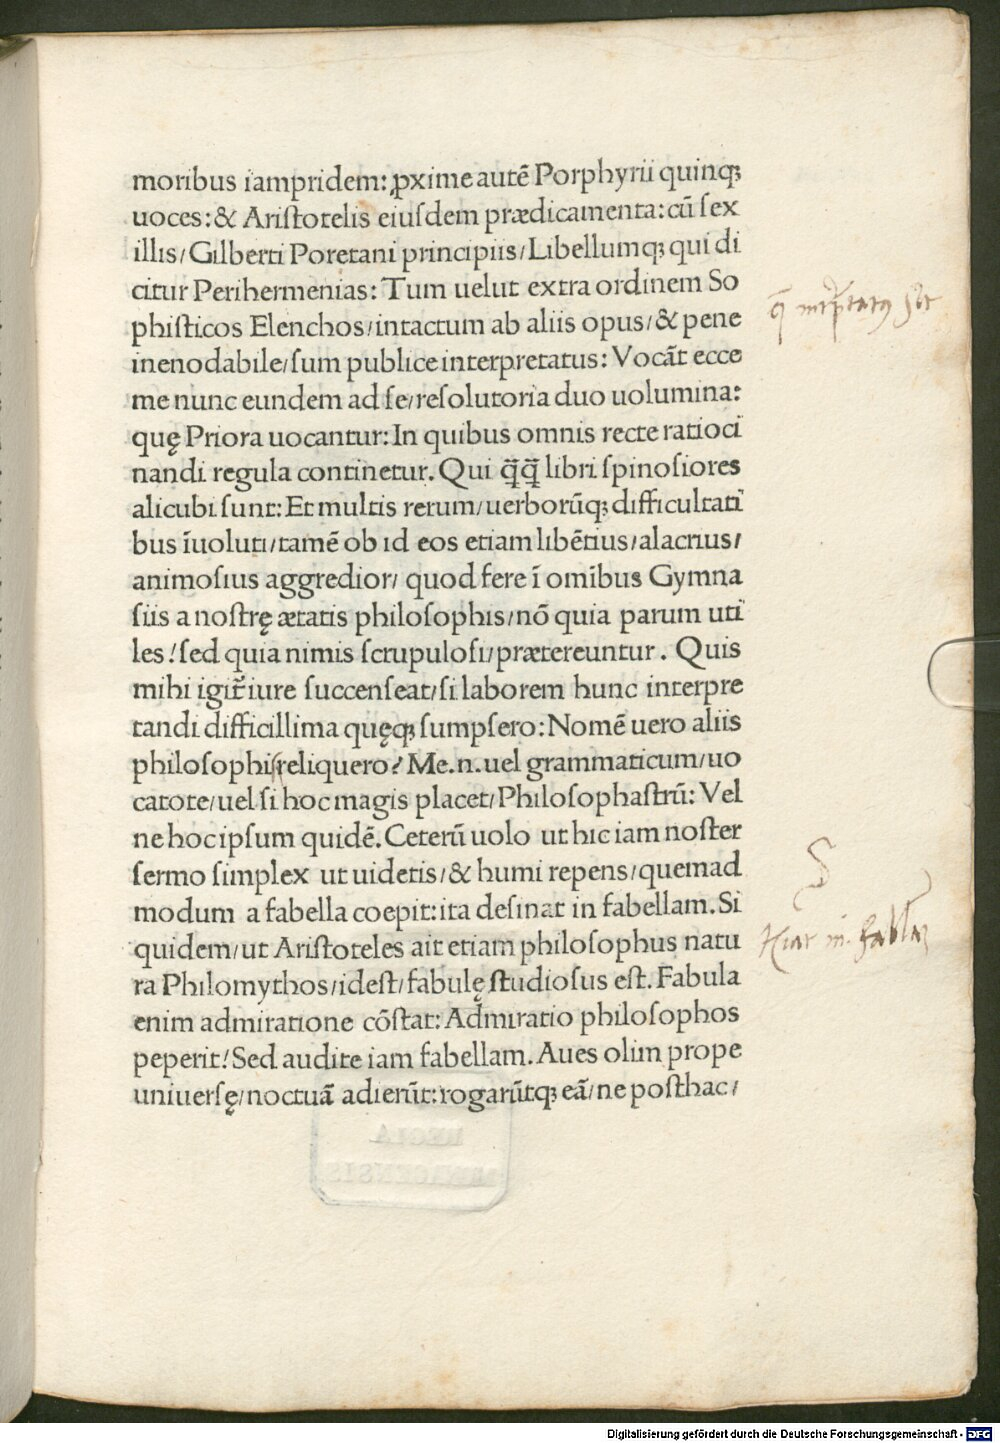 moribus iampridem: ꝓxime autē Porphyrii quinqꝫ
uoces: & Ariſtotelis eiuſdem prædicamenta: cū ſex
illis/ Gilberti Poretani principiis/ Libellumqꝫ qui di
citur Perihermenias: Tum uelut extra ordinem So
phiſticos Elenchos/ intactum ab aliis opus/ & pene
inenodabile/ ſum publice interpretatus: Vocāt ecce
me nunc eundem ad ſe/ reſolutoria duo uolumina:
quę Priora uocantur: In quibus omnis recte ratioci
nandi regula continetur. Qui q̄q̄ libri ſpinoſiores
alicubi ſunt: Et multis rerum/ uerborūqꝫ difficultati
bus īuoluti/ tamē ob id eos etiam libētius/ alacrius/
animoſius aggredior/ quod fere ī omībus Gymna
ſiis a noſtrę ætatis philoſophis/ nō quia parum uti
les! ſed quia nimis ſcrupuloſi/ prætereuntur. Quis
mihi igit̄ iure ſuccenſeat/ ſi laborem hunc interpre
tandi difficillima quęqꝫ ſumpſero: Nomē uero aliis
philoſophiſ reliquero? Me.n. uel grammaticum/ uo
catote/ uel ſi hoc magis placet/ Philoſophaſtrū: Vel
ne hoc ipſum quidē. Ceterū uolo ut hic iam noſter
ſermo ſimplex ut uidetis/ & humi repens/ quemad
modum a fabella coepit: ita deſinat in fabellam. Si
quidem/ ut Ariſtoteles ait etiam philoſophus natu
ra Philomythos/ ideſt/ fabulę ſtudioſus eſt. Fabula
enim admiratione cōſtat: Admiratio philoſophos
peperit! Sed audite iam fabellam. Aues olim prope
uniuerſę/ noctuā adierūt: rogarūtqꝫ eā/ ne poſthac/
Digitalisierung gefördert durch die Deutsche Forschungsgemeinschaft - DFG